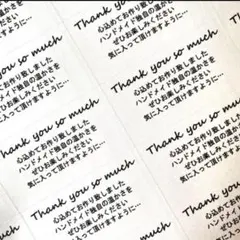 Thank you so much
心込めてお作り致しました
ハンドメイド独自の温かさを
ぜひお楽しみください
気に入って頂けますように…
Thank you so much
心込めてお作り致しました
ハンドメイド独自の温かさを
ぜひお楽しみください
気に入って頂けますように…
Thank you so much
心込めてお作り致しました
ハンドメイド独自の温かさを
ぜひお楽しみください
気に入って頂けますように…
Thank you so much
心込めてお作り致しました
ハンドメイド独自の温かさを
ぜひお楽しみください
気に入って頂けますように…
Thank you so much
心込めてお作り致しました
ハンドメイド独自の温かさを
ぜひお楽しみください
気に入って頂けますように…